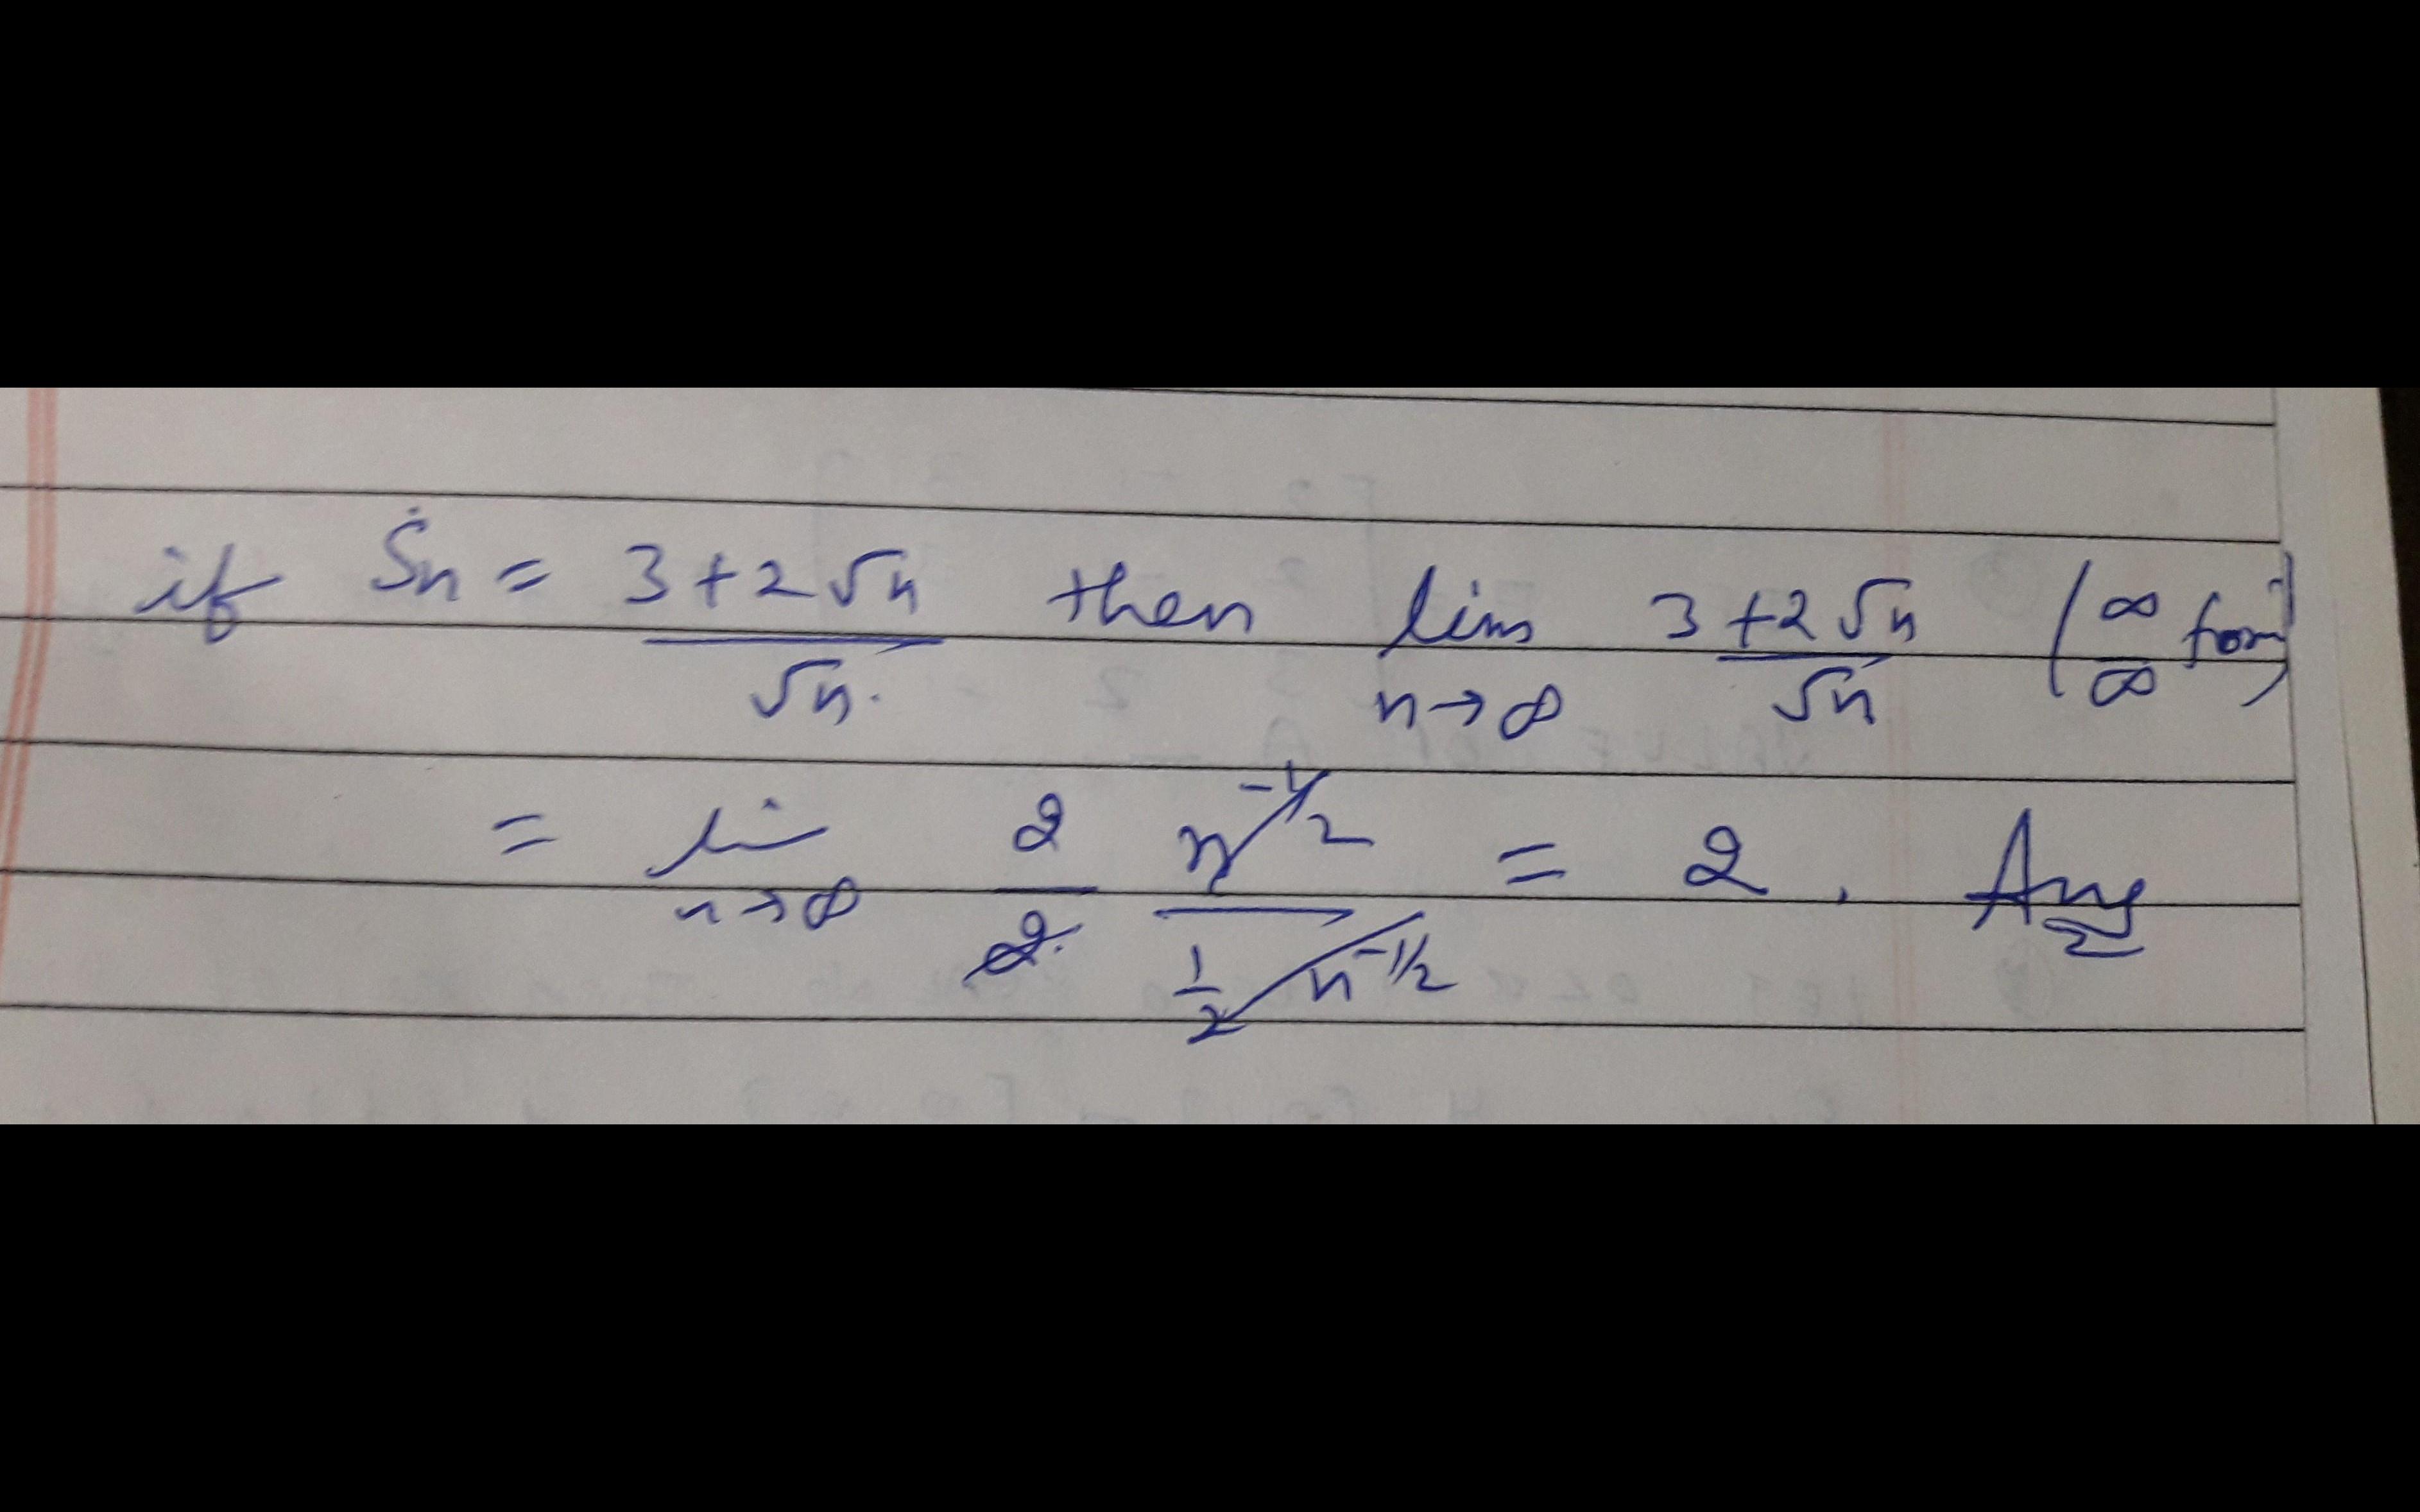 if Sn = 3+2√n/√n. then lim n→∞ 3+2√n/√n (∞/∞ form)
= li n→∞ 2/2. n^-1/2/1/2 n^-1/2 = 2. Ans